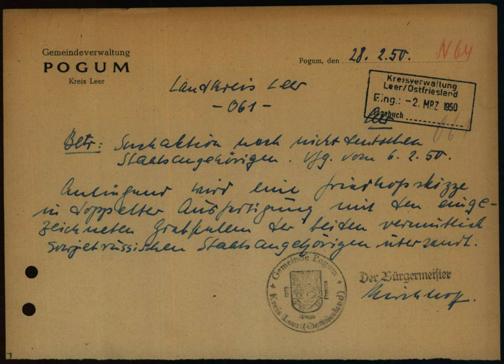 Gemeindeverwaltung
POGUM
Kreis Leer
Pogum, den 28. 2. 50.
N 64
Kreisverwaltung
Leer/Ostfriesland
Eing.: -2. MRZ. 1950
Landkreis Leer
- 061 -
Betr: Suchaktion nach nichtdeutschen
Staatsangehörigen. Vfg. vom 6. 2. 50.
Anliegend wird eine Friedhofskizze
in doppelter Ausfertigung mit den einge-
zeichneten Grabstellen der beiden vermutlich
sowjetrussischen Staatsangehörigen übersandt.
Gemeinde Pogum
Kreis Leer (Ostfriesland)
Der Bürgermeister